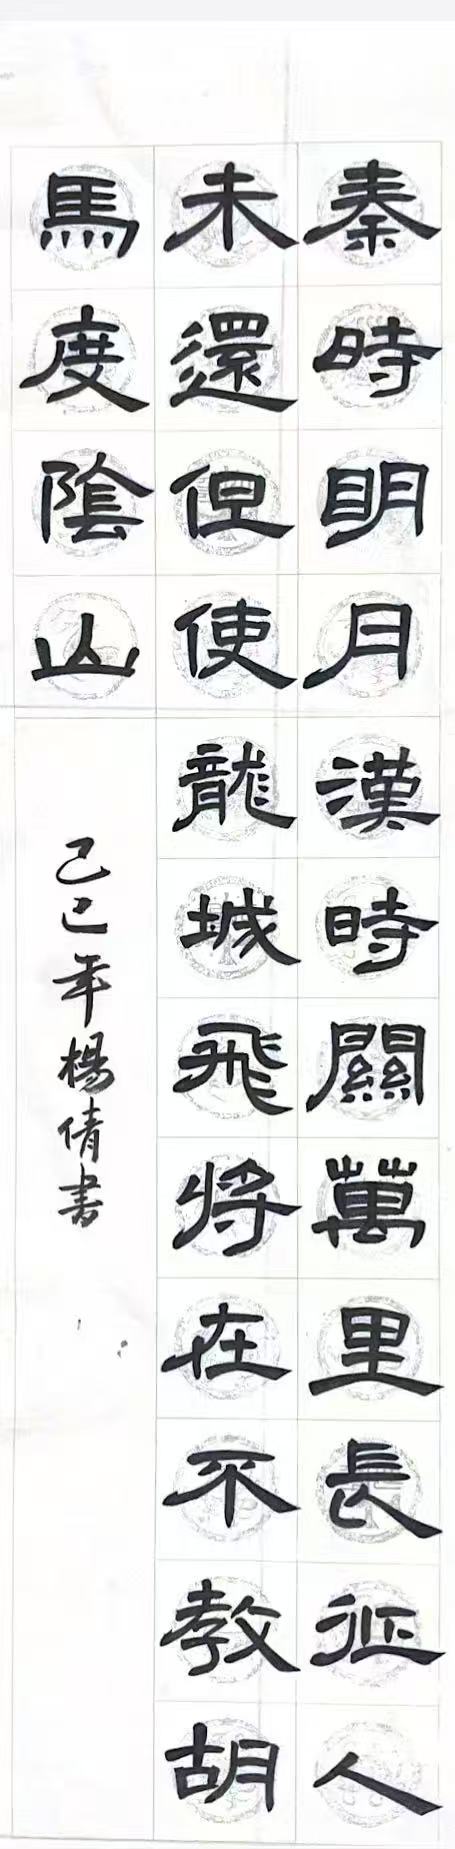 秦時明月漢時關萬里長征人
未還但使龍城飛將在不教胡
馬度陰山
己巳年楊倩書